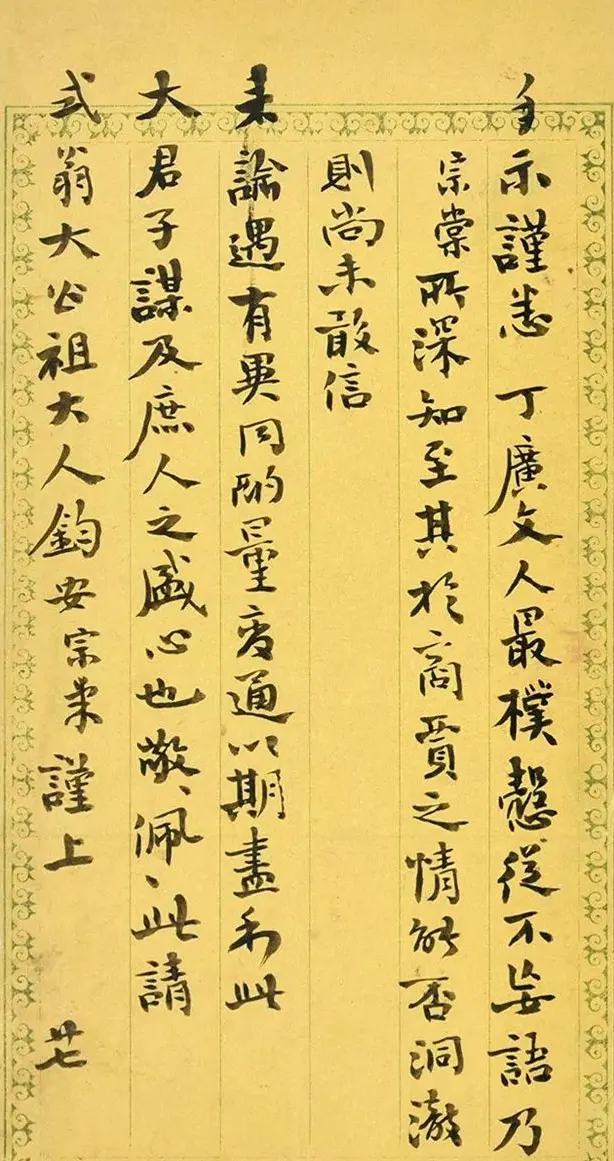 手示謹悉 丁廣文人最樸慤從不妄語乃
宗棠所深知至其於商賈之情能否洞澈
則尚未敢信
来諭遇有異同酌量變通以期盡利此
大君子謀及庶人之盛心也敬、佩、此請
式翁大公祖大人鈞安宗棠謹上 廿七